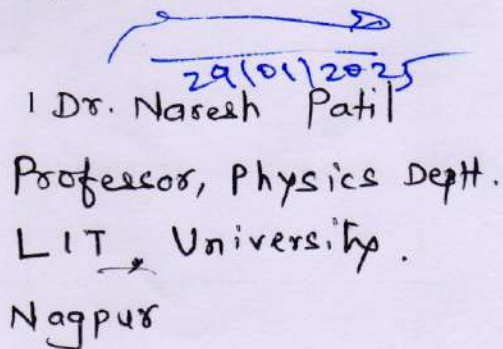 29/01/2025
1 Dr. Naresh Patil
Professor, Physics Deptt.
LIT, University.
Nagpur